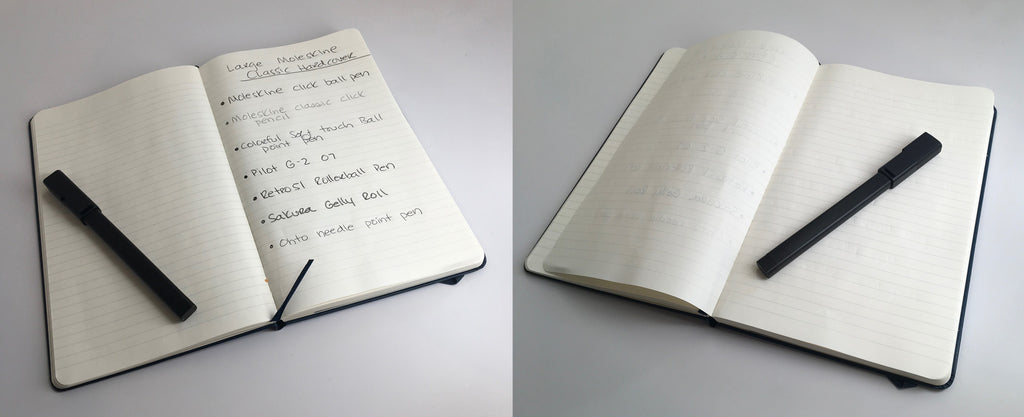 Large Moleskine
Classic Hardcover
• Moleskine click ball pen
• Moleskine classic click
pencil
• Colorful Soft touch Ball
point pen
• Pilot G-2 07
• Retro51 Rollerball Pen
• Sakura Gelly Roll
• Ohto needle point pen